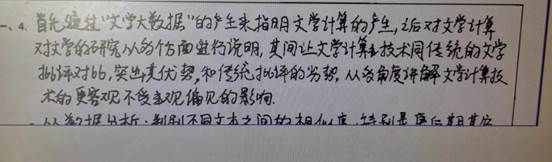 一、4. 首先通过"文学大数据"的产生来指明文学计算的产生,之后对文学计算
对文学的研究从各个方面进行说明,其间让文学计算技术同传统的文学
批评对比,突出其优势,和传统批评的劣势,从多角度讲解文学计算技
术的更客观不受主观偏见的影响.
从数据分析:判别不同文本之间的相似度,特别是原后期其位